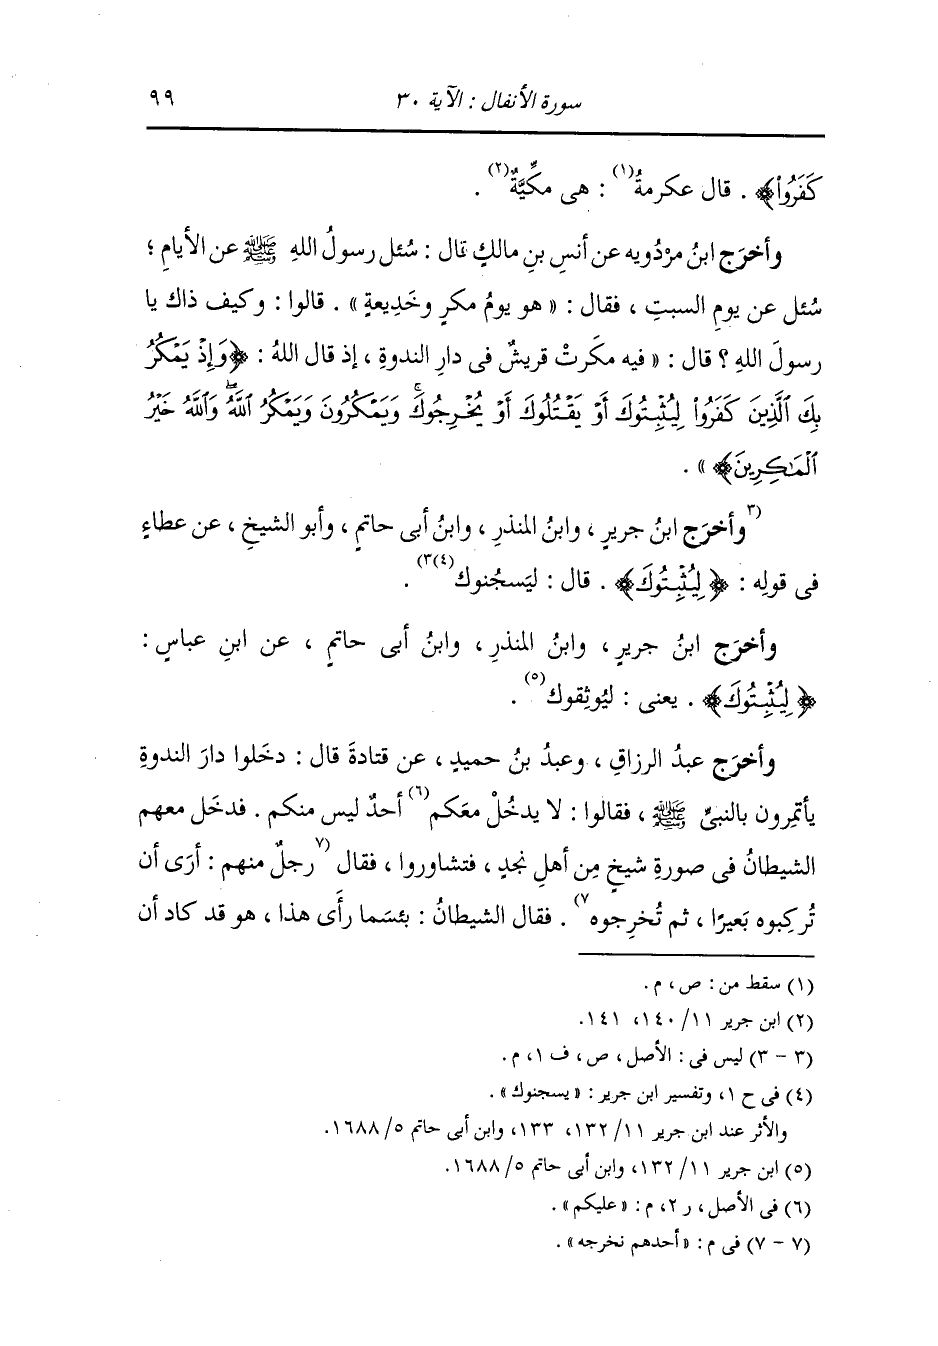 سورة الأنفال : الآية ٣٠ ٩٩
كَفَرُواْ﴾ . قال عكرمةُ(١) : هى مكِّيَّةٌ(٢) .
وأخرَج ابنُ مرْدُويه عن أنسِ بنِ مالكٍ قال : سُئل رسولُ اللهِ ﷺ عن الأيامِ ؛
سُئل عن يومِ السبتِ ، فقال : « هو يومُ مكرٍ وخَدِيعةٍ » . قالوا : وكيف ذاك يا
رسولَ اللهِ ؟ قال : « فيه مكَرتْ قريشٌ فى دارِ الندوةِ ، إذ قال اللهُ : ﴿وَإِذْ يَمْكُرُ
بِكَ ٱلَّذِينَ كَفَرُواْ لِيُثْبِتُوكَ أَوْ يَقْتُلُوكَ أَوْ يُخْرِجُوكَۚ وَيَمْكُرُونَ وَيَمْكُرُ ٱللَّهُۖ وَٱللَّهُ خَيْرُ
ٱلْمَٰكِرِينَ﴾ » .
(٣وأخرَج ابنُ جريرٍ ، وابنُ المنذرِ ، وابنُ أبى حاتمٍ ، وأبو الشيخِ ، عن عطاءٍ
فى قولِه : ﴿لِيُثْبِتُوكَ﴾ . قال : ليَسجُنوك(٤)٣) .
وأخرَج ابنُ جريرٍ ، وابنُ المنذرِ ، وابنُ أبى حاتمٍ ، عن ابنِ عباسٍ :
﴿لِيُثْبِتُوكَ﴾ . يعنى : ليُوثِقوك(٥) .
وأخرَج عبدُ الرزاقِ ، وعبدُ بنُ حميدٍ ، عن قتادةَ قال : دخَلوا دارَ الندوةِ
يأتمِرون بالنبىِّ ﷺ ، فقالوا : لا يدخُلْ معَكم(٦) أحدٌ ليس منكم . فدخَل معهم
الشيطانُ فى صورةِ شيخٍ مِن أهلِ نجدٍ ، فتشاوروا ، فقال (٧رجلٌ منهم : أرَى أن
تُركِبوه بَعيرًا ، ثم تُخرِجوه٧) . فقال الشيطانُ : بئسَما رأَى هذا ، هو قد كاد أن
(١) سقط من : ص ، م .
(٢) ابن جرير ١١/ ١٤٠، ١٤١.
(٣ - ٣) ليس فى : الأصل ، ص ، ف ١، م .
(٤) فى ح ١، وتفسير ابن جرير : « يسجنوك » .
والأثر عند ابن جرير ١١/ ١٣٢، ١٣٣، وابن أبى حاتم ٥/ ١٦٨٨.
(٥) ابن جرير ١١/ ١٣٢، وابن أبى حاتم ٥/ ١٦٨٨.
(٦) فى الأصل ، ر ٢، م : « عليكم » .
(٧ - ٧) فى م : « أحدهم نخرجه » .